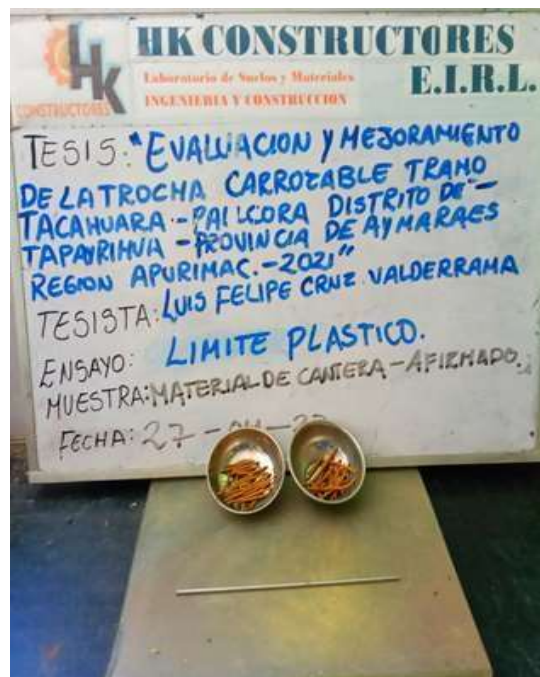 HK
CONSTRUCTORES
HK CONSTRUCTORES
E.I.R.L.
Laboratorio de Suelos y Materiales
INGENIERIA Y CONSTRUCCION
TESIS: "EVALUACION Y MEJORAMIENTO
DE LA TROCHA CARROZABLE TRAMO
TACAHUARA - PAILCORA DISTRITO DE -
TAPAYRIHUA - PROVINCIA DE AYMARAES
REGION APURIMAC. - 2021"
TESISTA: LUIS FELIPE CRUZ VALDERRAMA
ENSAYO: LIMITE PLASTICO.
MUESTRA: MATERIAL DE CANTERA - AFIRMADO.
FECHA: 27 - 04 -